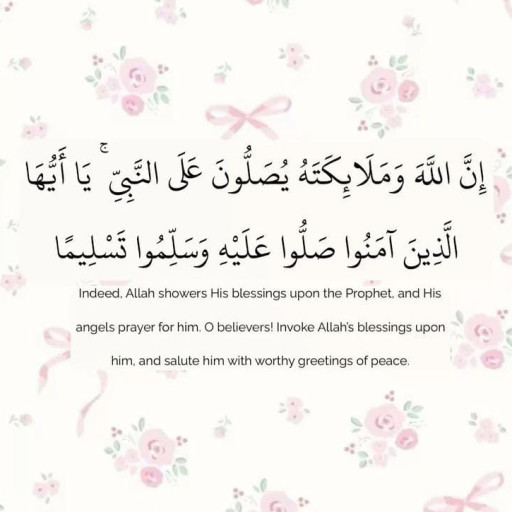 إِنَّ اللَّهَ وَمَلَائِكَتَهُ يُصَلُّونَ عَلَى النَّبِيِّ ۚ يَا أَيُّهَا
الَّذِينَ آمَنُوا صَلُّوا عَلَيْهِ وَسَلِّمُوا تَسْلِيمًا
Indeed, Allah showers His blessings upon the Prophet, and His
angels prayer for him. O believers! Invoke Allah's blessings upon
him, and salute him with worthy greetings of peace.